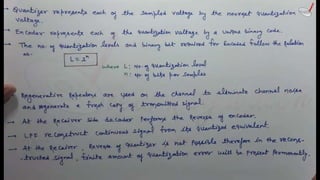 → Quantizer represents each of the sampled voltage by the nearest quantization
voltage.
→ Encoder represents each of the quantization voltage by a unique binary code.
→ The no. of quantization levels and binary bit required for encoder follow the relation
as-
L = 2ⁿ
where L: no. of quantization level
n: no. of bits per samples
Regenerative Repeaters are used on the channel to eliminate channel noise
and regenerate a fresh copy of transmitted signal.
→ At the Receiver side decoder performs the Reverse of encoder.
→ LPF reconstruct continuous signal from its quantized equivalent.
→ At the Receiver, Reverse of Quantizer is not possible therefore in the recons-
-tructed signal, finite amount of quantization error will be present permanently.